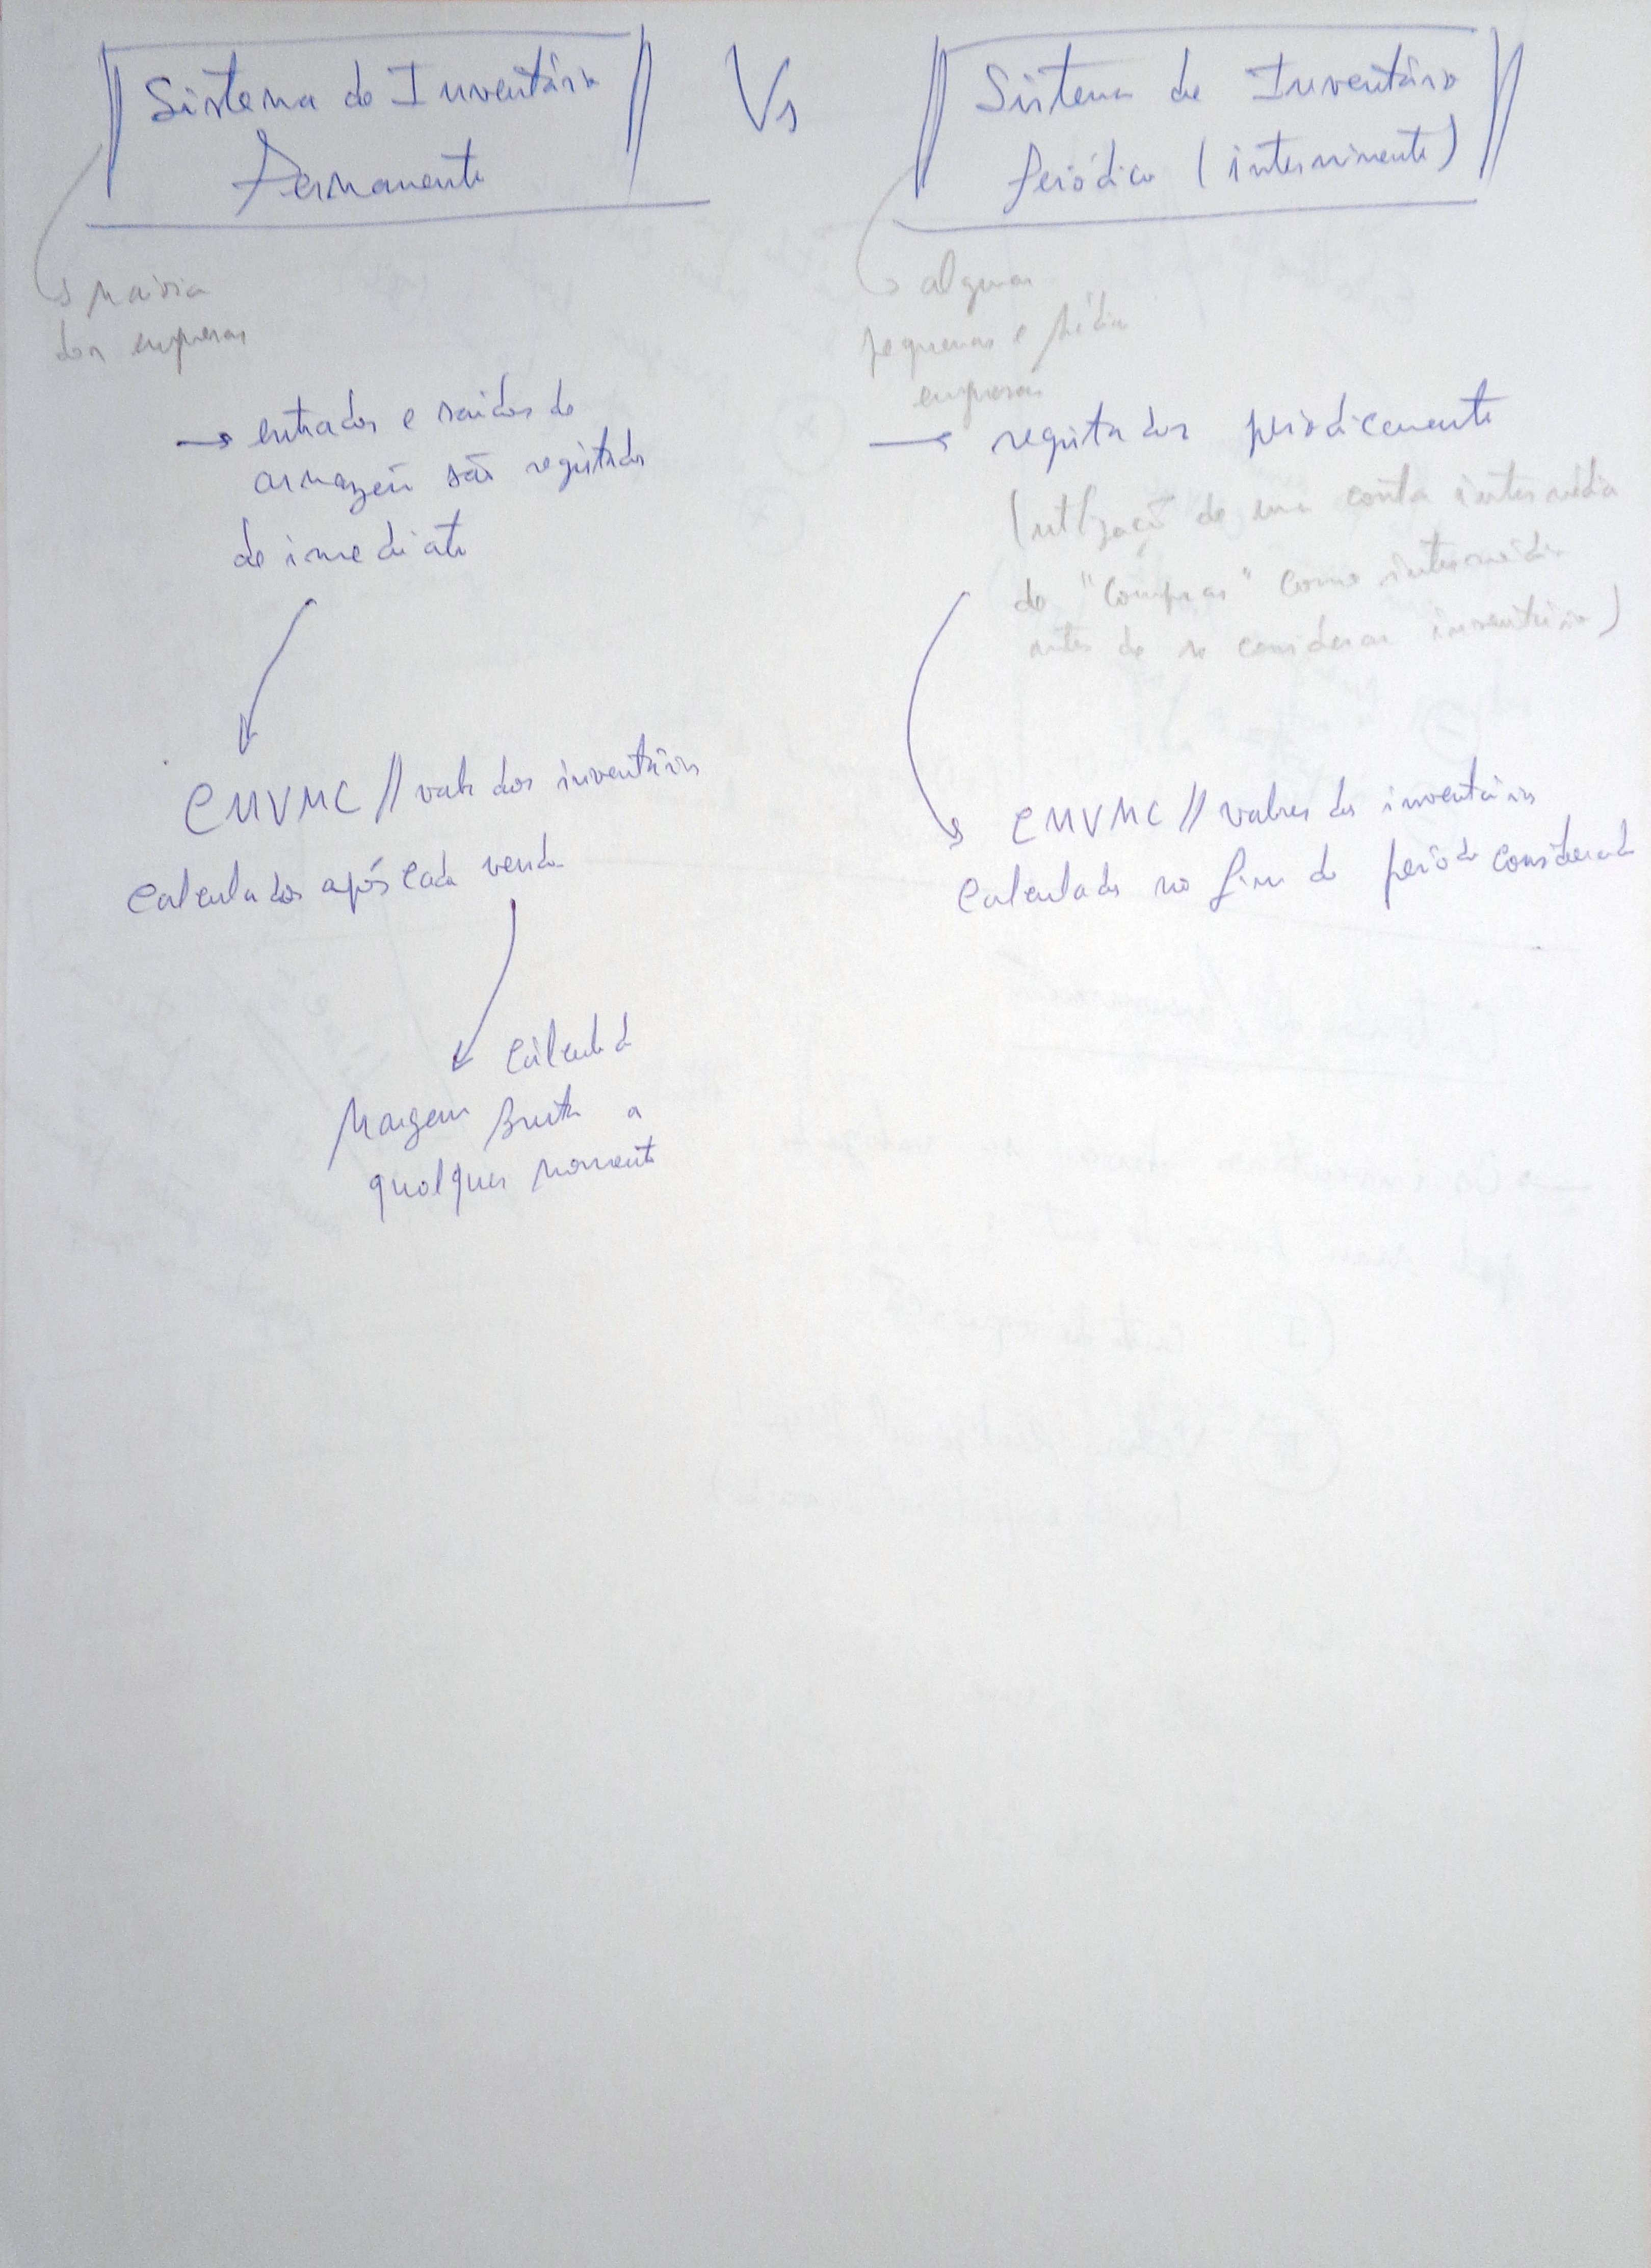 Sistema de Inventário
Permanente
Vs
Sistema de Inventário
Periódico (intermimente)
maioria
das empresas
algumas
pequenas e média
empresas
→ entradas e saídas de
armazém são registadas
de imediato
→ registadas periodicamente
(utilização de uma conta intermédia
de "Compras" como intermédia
antes de se considerar inventário)
CMVMC // valor dos inventários
calculados após cada venda
CMVMC // valores dos inventários
calculados no fim do período considerado
cálculo da
Margem Bruta a
qualquer momento